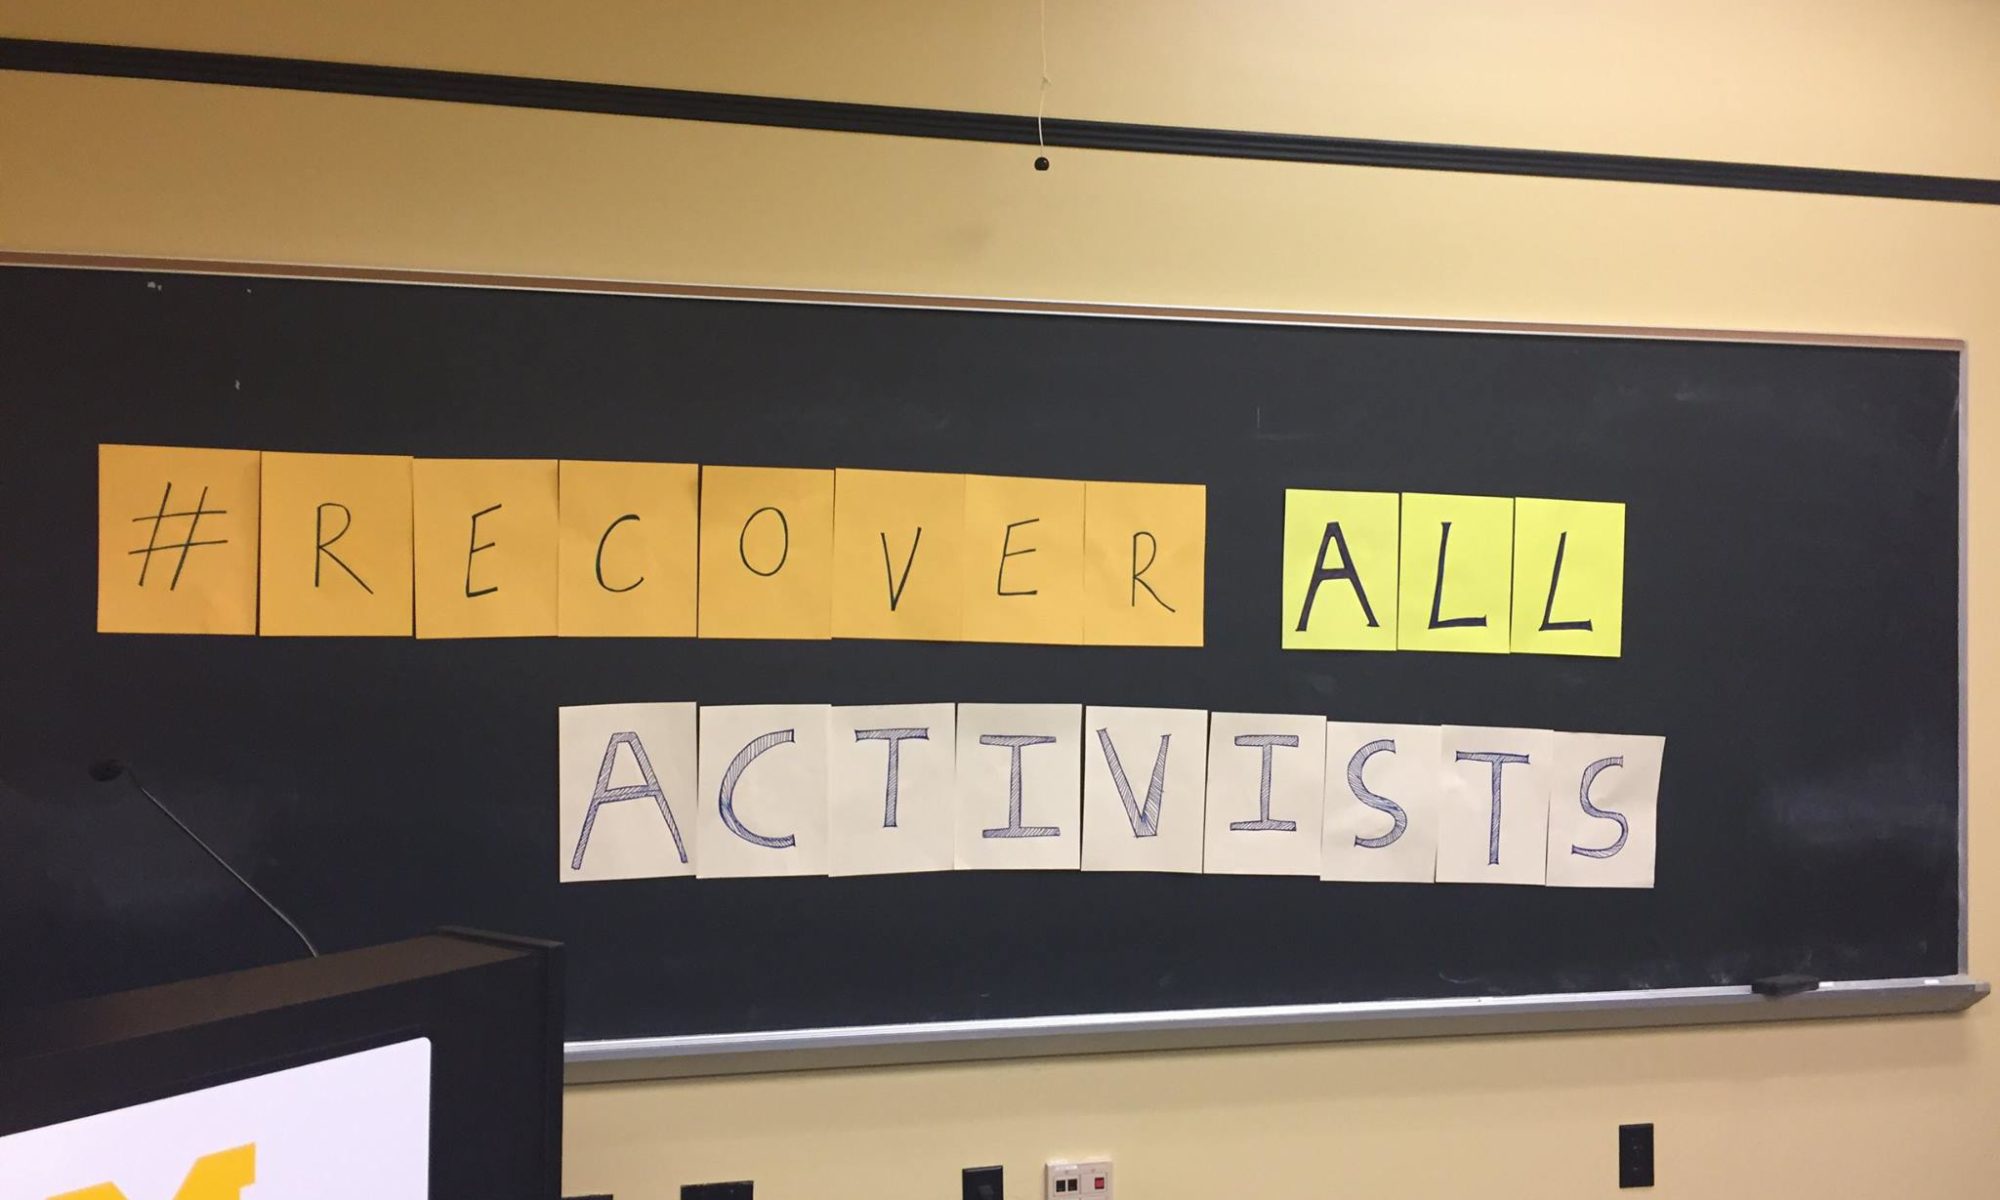 #RECOVER ALL
ACTIVISTS